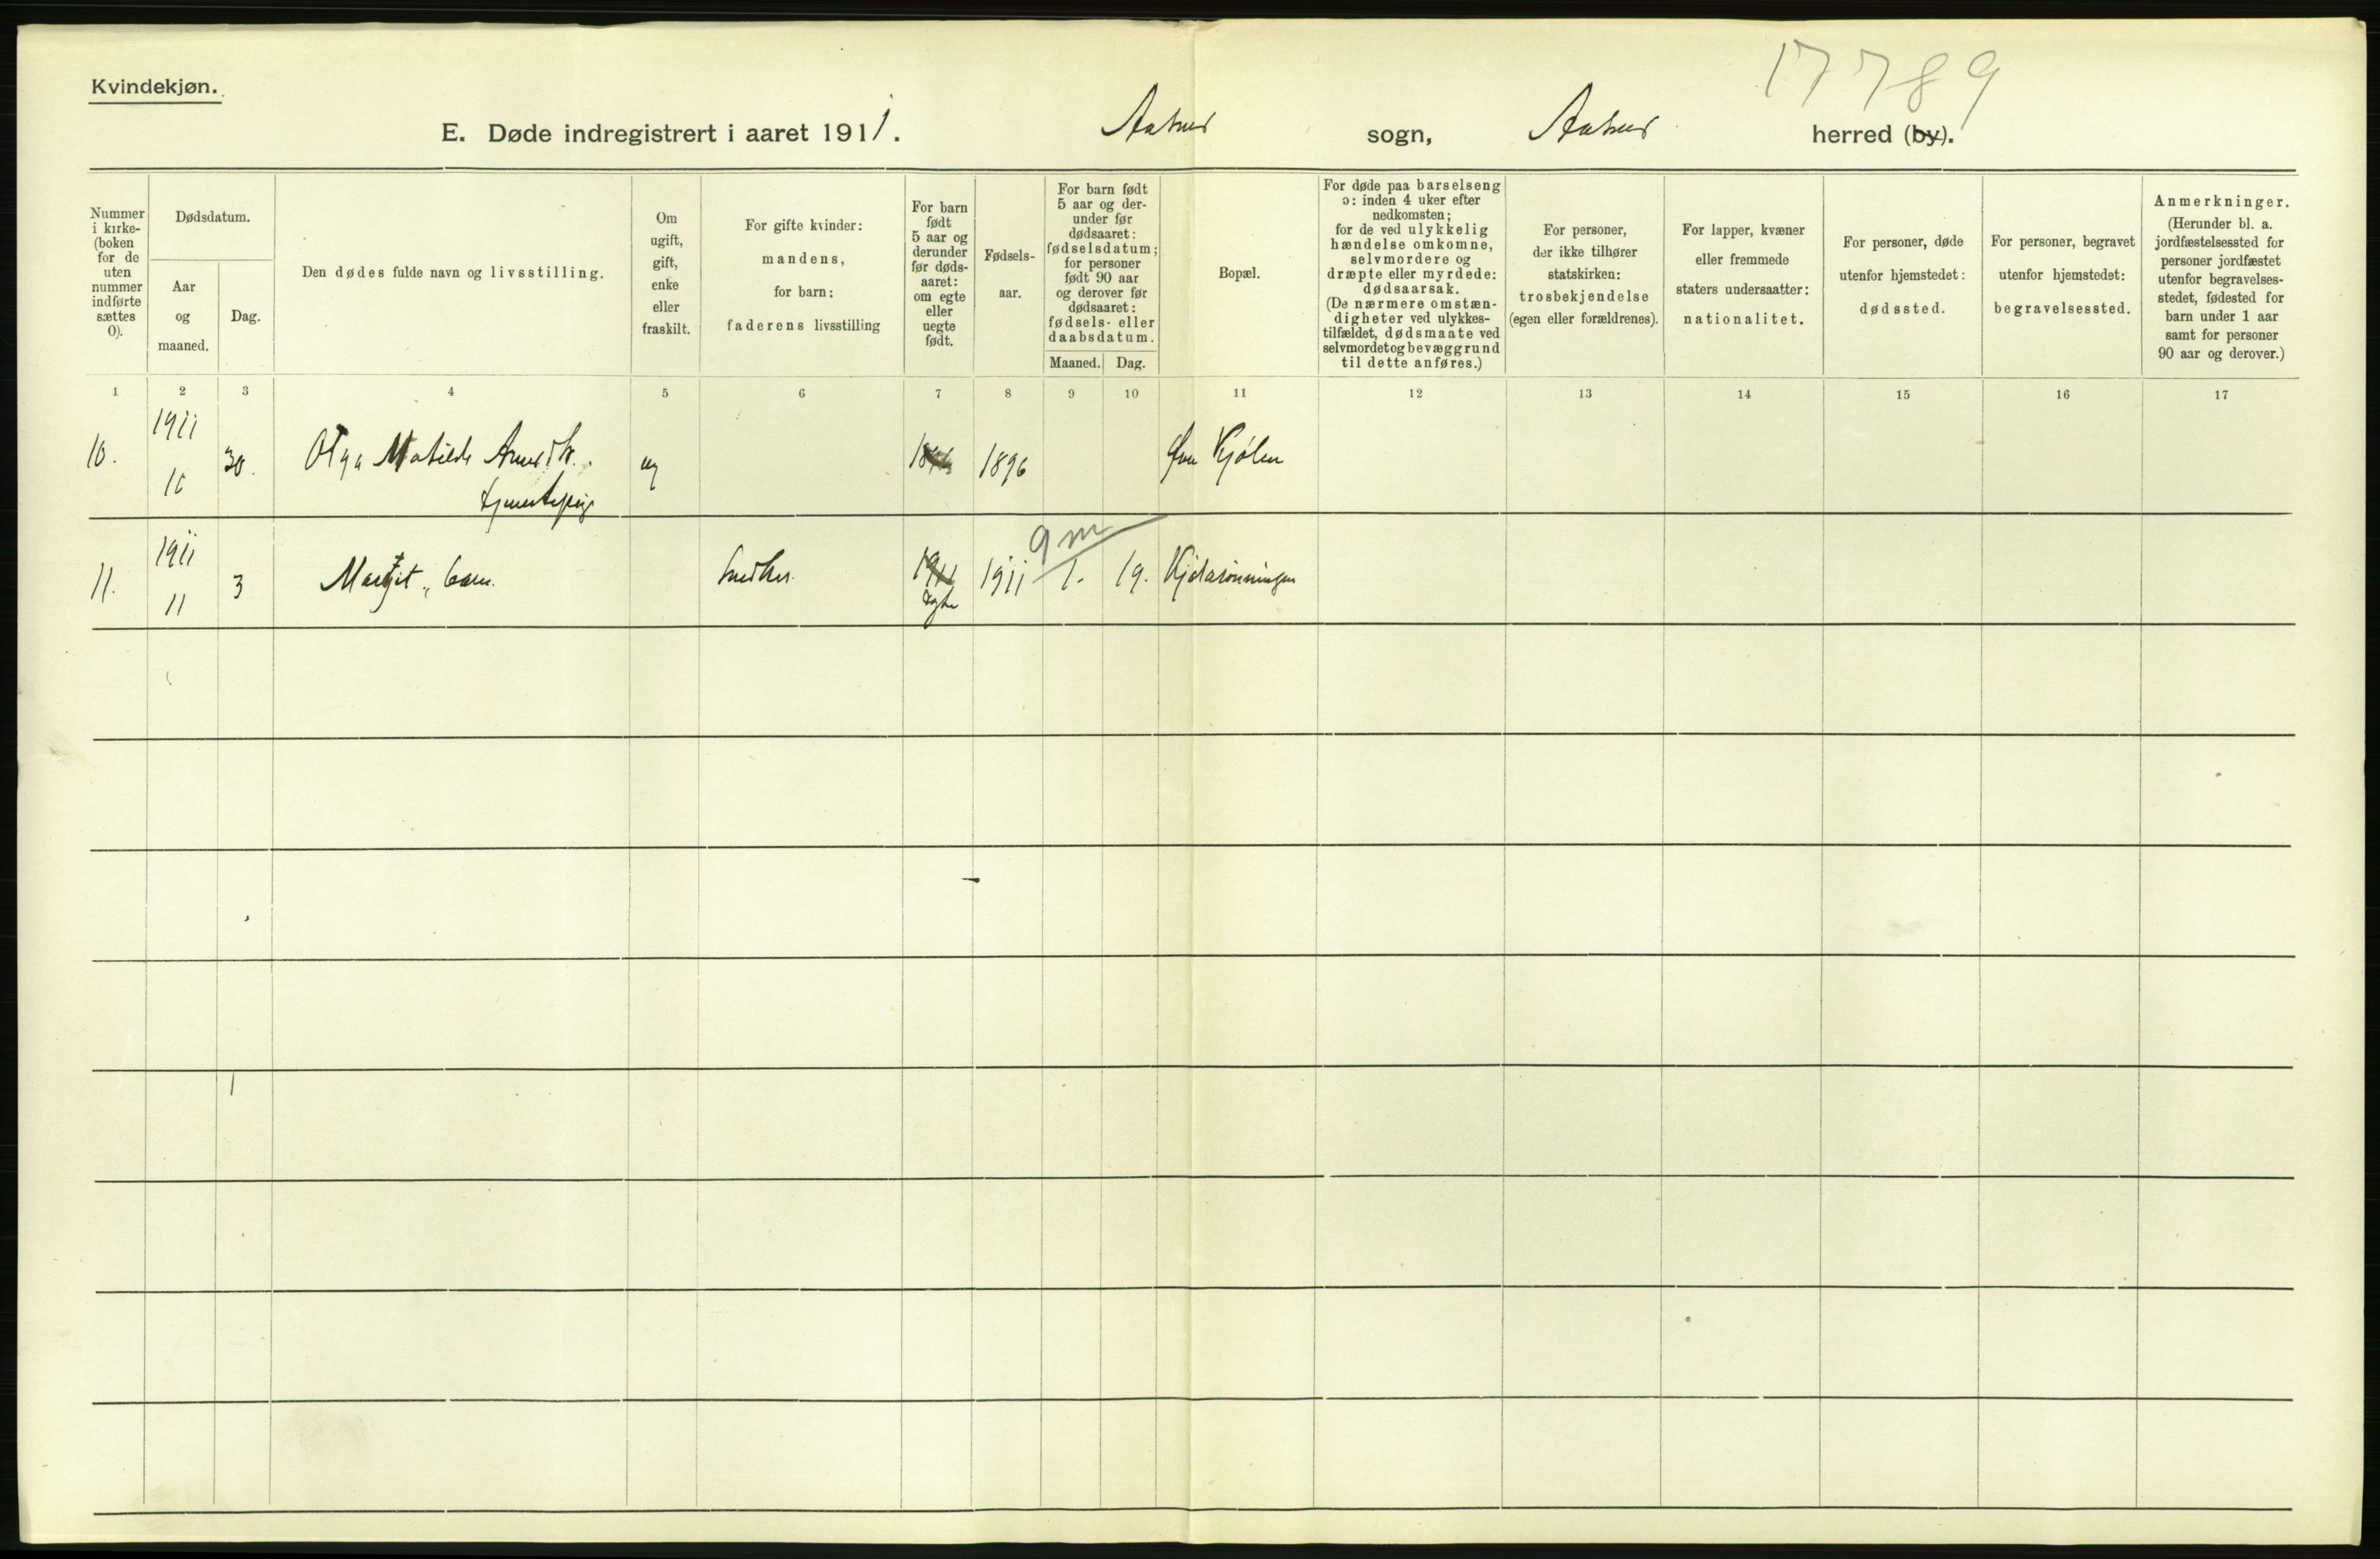 Kvindekjøn.
17789
E. Døde indregistrert i aaret 1911. Aasnes sogn, Aasnes herred (by).
Nummer i kirke- (boken for de uten nummer indførte sættes 0).
Dødsdatum.
Aar og maaned.
Dag.
Den dødes fulde navn og livsstilling.
Om ugift, gift, enke eller fraskilt.
For gifte kvinder: mandens, for barn: faderens livsstilling
For barn født 5 aar og derunder før døds- aaret: om egte eller uegte født.
Fødsels- aar.
For barn født 5 aar og der- under før dødsaaret: fødselsdatum; for personer født 90 aar og derover før dødsaaret: fødsels- eller daabsdatum.
Maaned. Dag.
Bopæl.
For døde paa barselseng ɔ: inden 4 uker efter nedkomsten; for de ved ulykkelig hændelse omkomne, selvmordere og dræpte eller myrdede: dødsaarsak. (De nærmere omstæn- digheter ved ulykkes- tilfældet, dødsmaate ved selvmord et og bevæggrund til dette anføres.)
For personer, der ikke tilhører statskirken: trosbekjendelse (egen eller forældrenes).
For lapper, kvæner eller fremmede staters undersaatter: nationalitet.
For personer, døde utenfor hjemstedet: dødssted.
For personer, begravet utenfor hjemstedet: begravelsessted.
Anmerkninger. (Herunder bl. a. jordfæstelsessted for personer jordfæstet utenfor begravelses- stedet, fødested for barn under 1 aar samt for personer 90 aar og derover.)
1 2 3 4 5 6 7 8 9 10 11 12 13 14 15 16 17
10. 1911 10 30. Olga Matilde ug 1896 Kjølen
9 m
11. 1911 11 3 Margit, barn. 1911 egte 1911 1. 19.